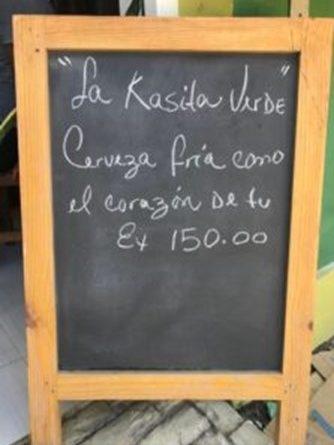 "La Kasita Verde"
Cerveza fría como
el corazón de tu
Ex 150.00